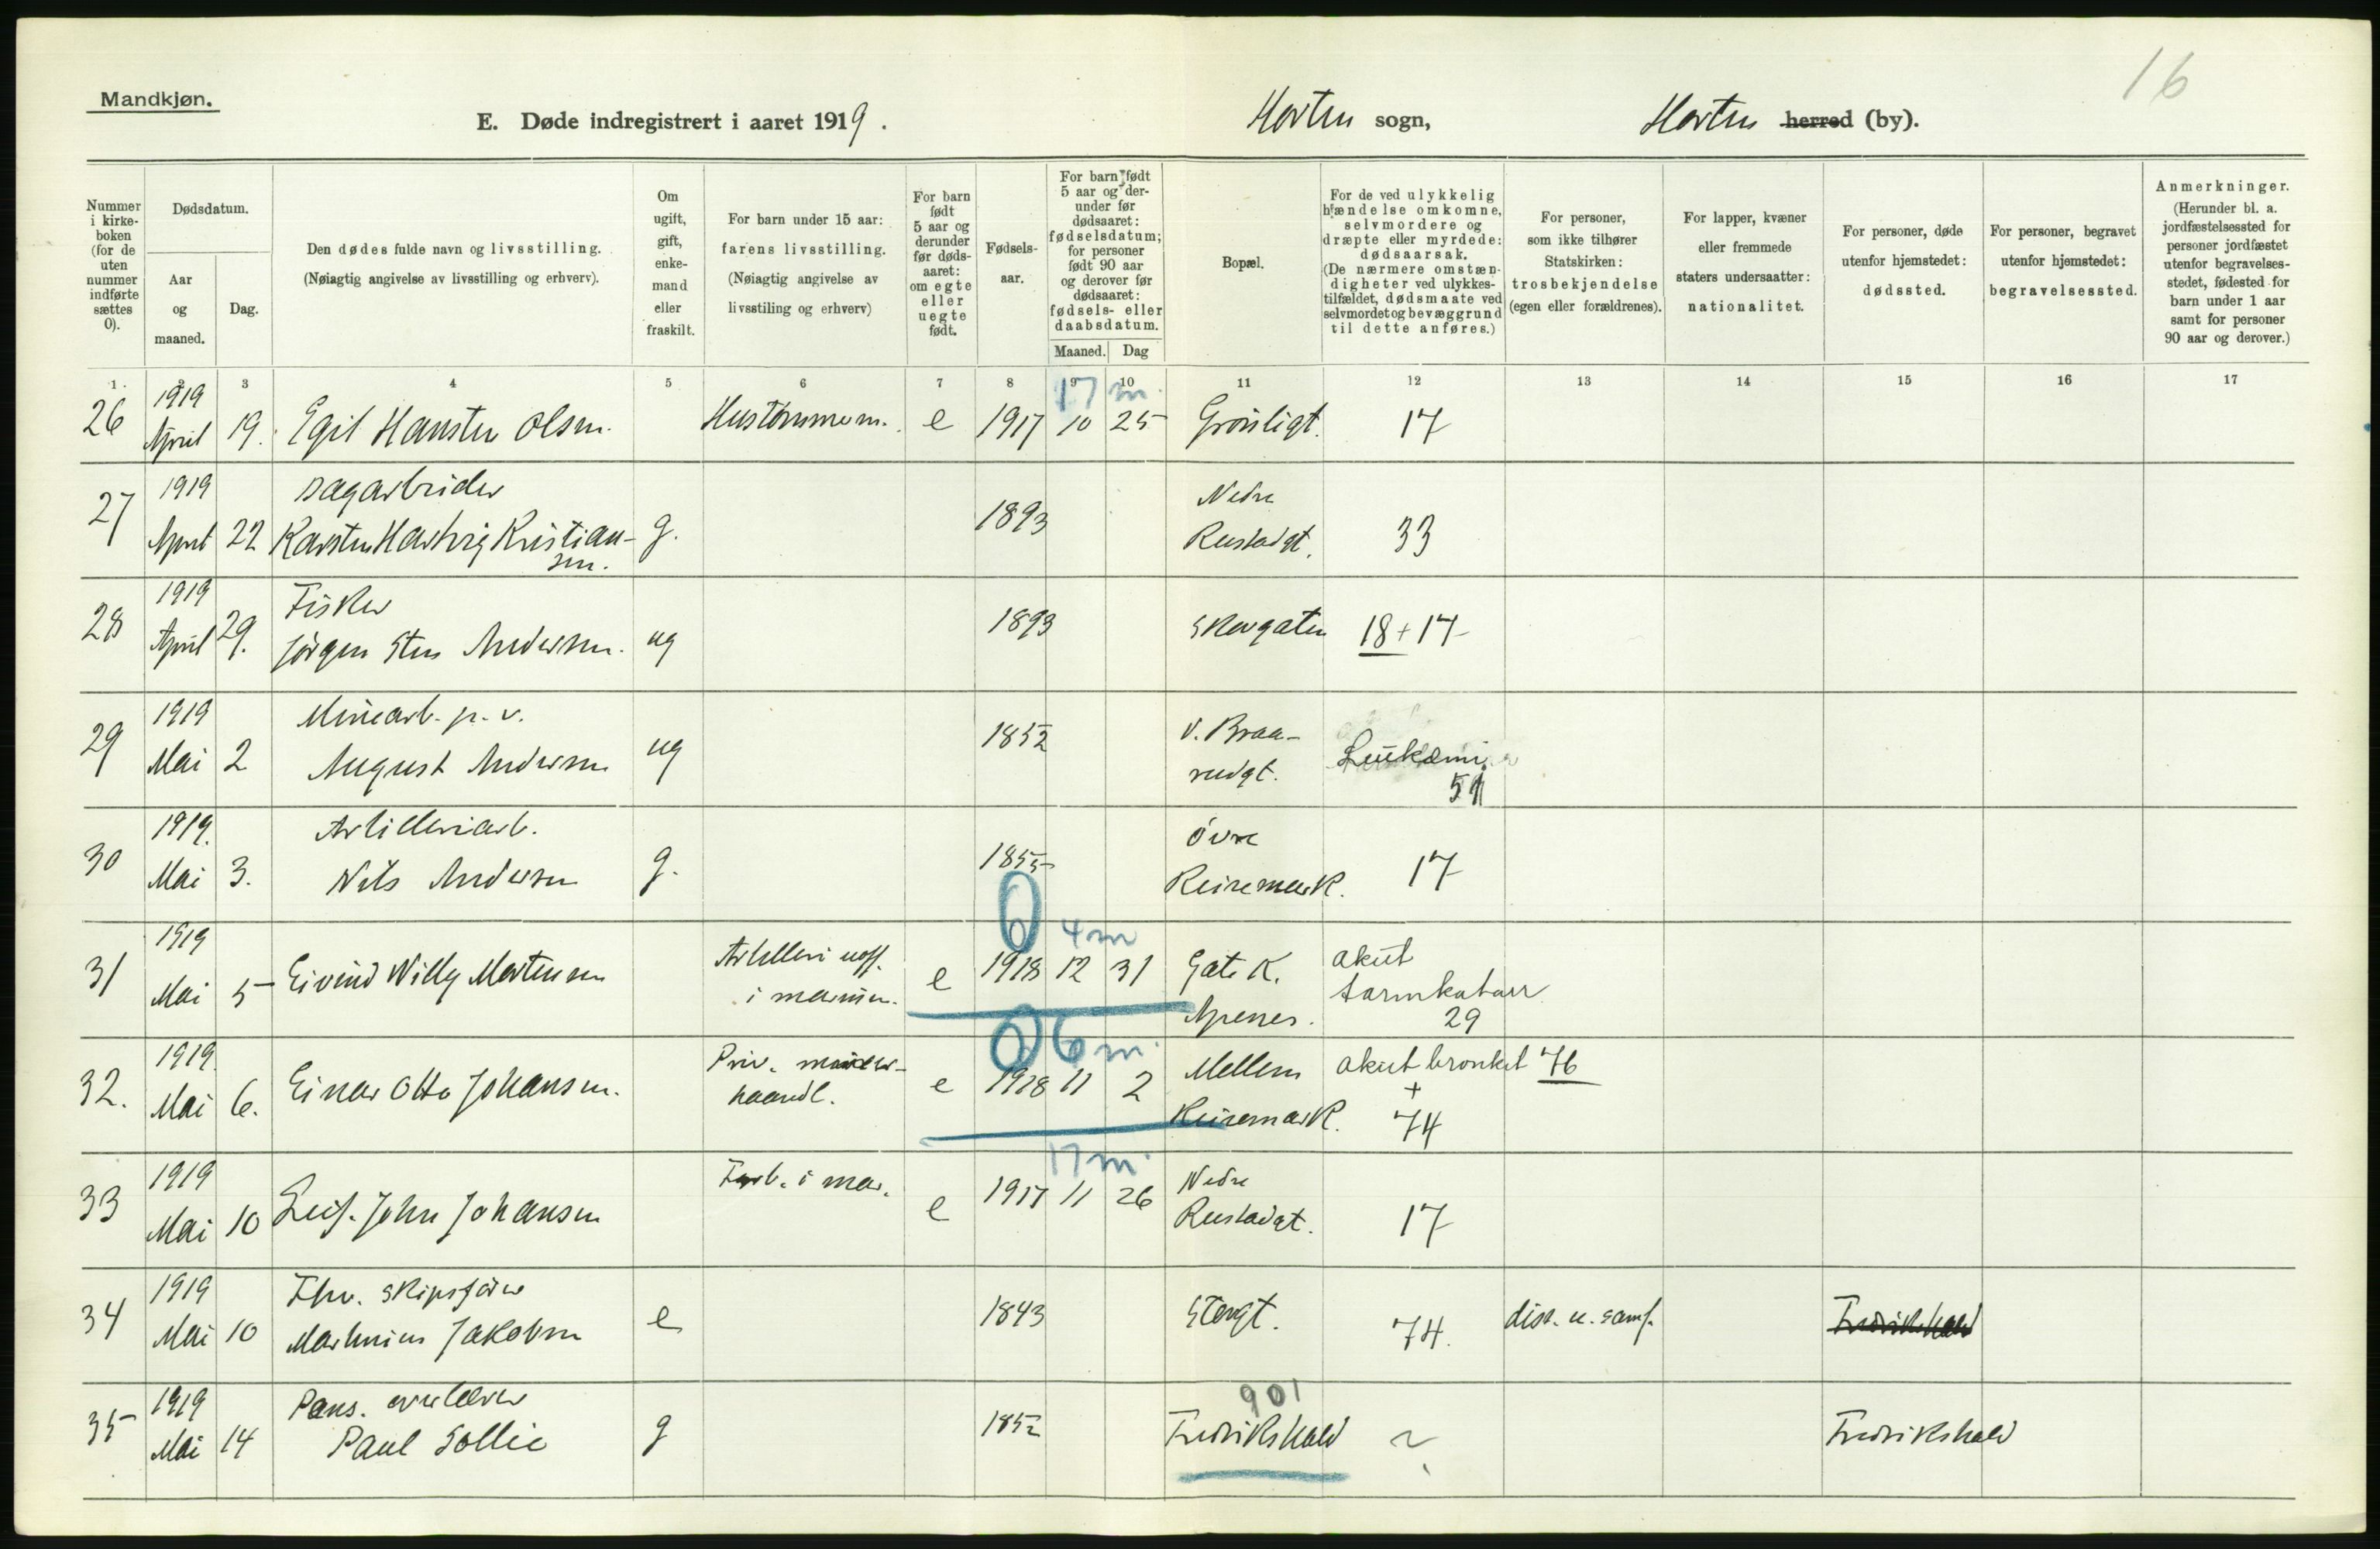 16
Mandkjøn.
E. Døde indregistrert i aaret 1919. Horten sogn, Horten herred (by).
Nummer i kirke-boken (for de uten nummer indførte sættes 0).
Dødsdatum.
Aar og maaned.
Dag.
Den dødes fulde navn og livsstilling.
(Nøiagtig angivelse av livsstilling og erhverv).
Om ugift, gift, enke-mand eller fraskilt.
For barn under 15 aar: farens livsstilling.
(Nøiagtig angivelse av livsstiling og erhverv)
For barn født 5 aar og derunder før døds-aaret: om egte eller uegte født.
Fødsels-aar.
For barn født 5 aar og der-under før dødsaaret: fødselsdatum; for personer født 90 aar og derover før dødsaaret: fødsels- eller daabsdatum.
Maaned. Dag
Bopæl.
For de ved ulykkelig hændelse omkomne, selvmordere og dræpte eller myrdede: dødsaarsak.
(De nærmere omstæn-digheter ved ulykkes-tilfældet, dødsmaate ved selvmordet og bevæggrund til dette anføres.)
For personer, som ikke tilhører Statskirken: trosbekjendelse (egen eller forældrenes).
For lapper, kvæner eller fremmede staters undersaatter: nationalitet.
For personer, døde utenfor hjemstedet: dødssted.
For personer, begravet utenfor hjemstedet: begravelsessted.
Anmerkninger.
(Herunder bl. a. jordfæstelsessted for personer jordfæstet utenfor begravelses-stedet, fødested for barn under 1 aar samt for personer 90 aar og derover.)
1. 2 3 4 5 6 7 8 9 10 11 12 13 14 15 16 17
17 m.
26 1919 April 19. Egil Hansten Olsen. Hustømmerm. e 1917 10 25 Grønligt. 17
27 1919 April 22 Sagarbeider
Karsten Hartvig Kristian-
sen. g. 1893 Nedre
Rustadgt. 33
28 1919 April 29. Fisker
Jørgen Sten Andersen. ug 1893 Skovgaten 18 + 17
29 1919 Mai 2 Minearb. p. v.
August Andersen ug 1852 V. Braa-
rudgt. Leukæmi
51
30 1919. Mai 3. Artilleriarb.
Nils Andersen g. 1855 Øvre
Keisemark. 17
0 4 m
31 1919 Mai 5 Eivind Willy Mortensen Artilleri uoff.
i marinen. e 1918 12 31 Gate K.
Apenes. akut
tarmkatarr
29
0 6 m.
32. 1919. Mai 6. Einar Otto Johansen. Priv.
haandl. e 1918 11 2 Mellem
Keisemark. akut bronkit 76
+
74
17 m.
33 1919 Mai 10 Leif John Johansen i mar. e 1917 11 26 Nedre
Rustadgt. 17
34 1919 Mai 10 Fhv. skipsfører
Martinius Jakobsen e 1843 Storgt. 74. diss. u. samf. Fredrikshald
901
35 1919 Mai 14 Pens.
Paul Sollie g 1852 Fredrikshald ? Fredrikshald